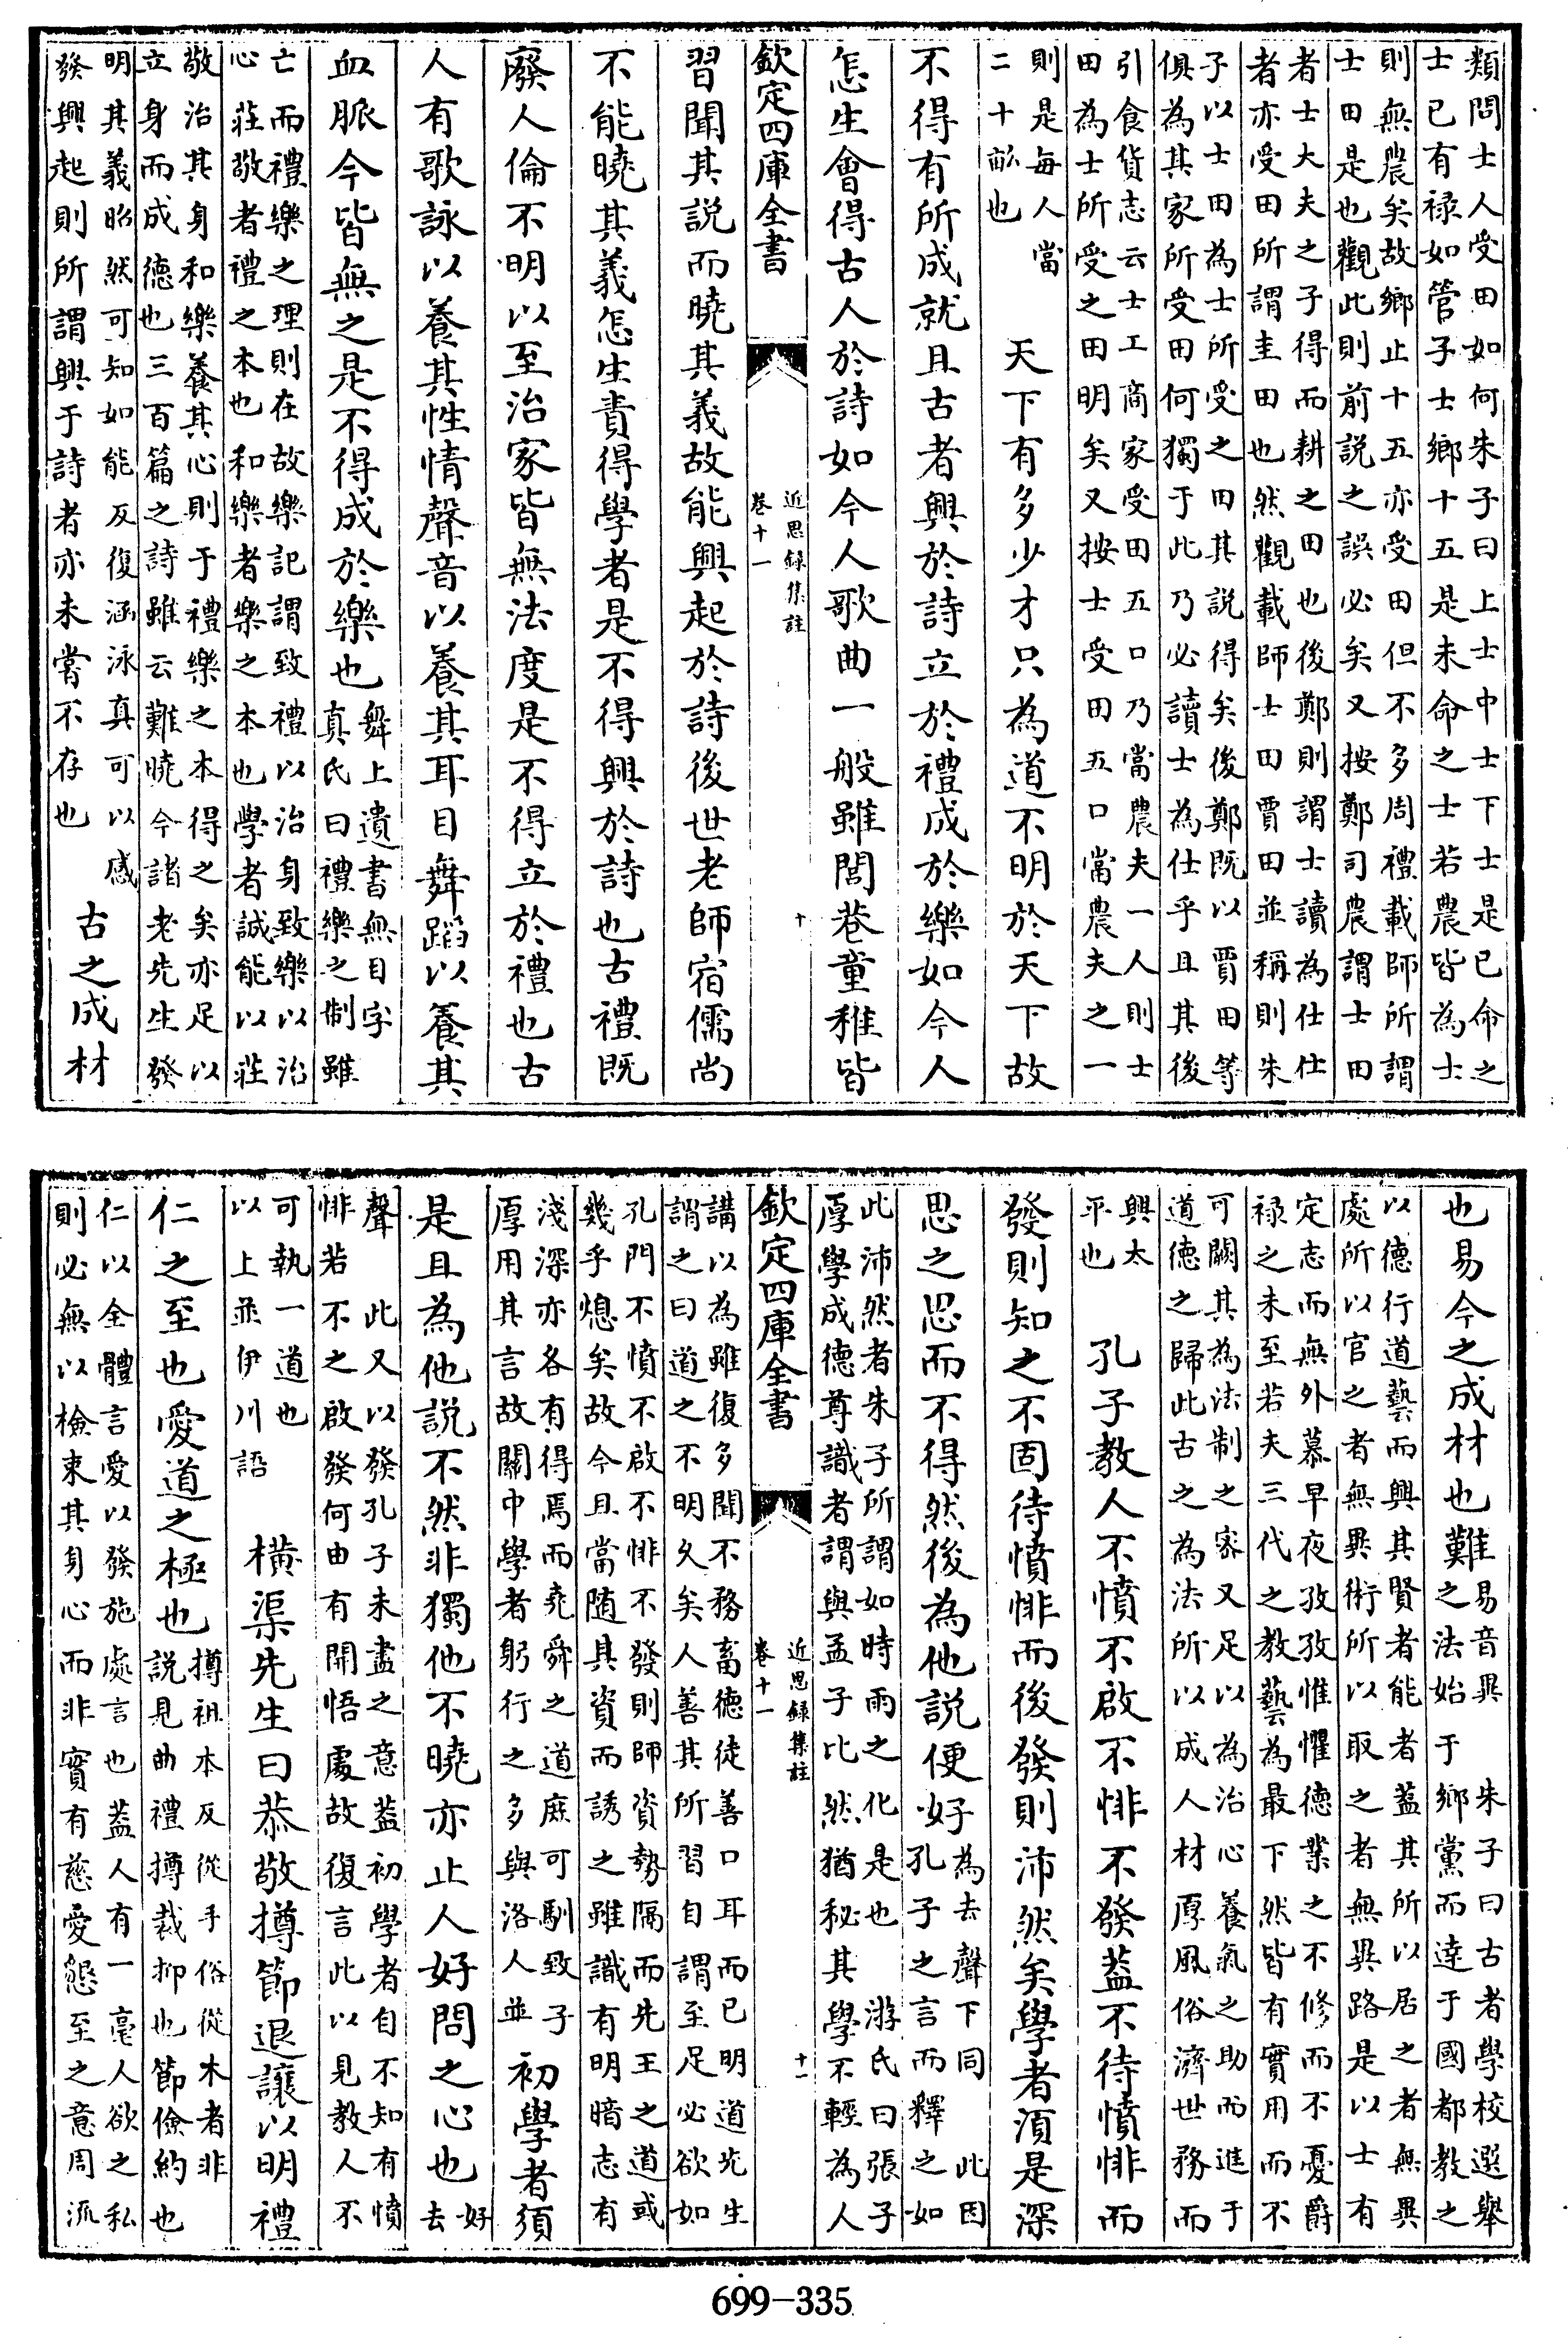 類問士人受田如何朱子曰上士中士下士是已命之
士已有禄如管子士鄉十五是未命之士若農皆為士
則無農矣故鄉止十五亦受田但不多周禮載師所謂
士田是也觀此則前説之誤必矣又按鄭司農謂士田
者士大夫之子得而耕之田也後鄭則謂士讀為仕仕
者亦受田所謂圭田也然觀載師士田賈田並稱則朱
子以士田為士所受之田其説得矣後鄭既以賈田等
俱為其家所受田何獨于此乃必讀士為仕乎且其後
引食貨志云士工商家受田五口乃當農夫一人則士
田為士所受之田明矣又按士受田五口當農夫之一
則是每人當
二十畝也
天下有多少才只為道不明於天下故
不得有所成就且古者興於詩立於禮成於樂如今人
怎生會得古人於詩如今人歌曲一般雖閭巷童稚皆
欽定四庫全書
近思録集註
卷十一
十
習聞其説而曉其義故能興起於詩後世老師宿儒尚
不能曉其義怎生責得學者是不得興於詩也古禮既
廢人倫不明以至治家皆無法度是不得立於禮也古
人有歌詠以養其性情聲音以養其耳目舞蹈以養其
血脈今皆無之是不得成於樂也
舞上遺書無目字
真氏曰禮樂之制雖
亡而禮樂之理則在故樂記謂致禮以治身致樂以治
心莊敬者禮之本也和樂者樂之本也學者誠能以莊
敬治其身和樂養其心則于禮樂之本得之矣亦足以
立身而成德也三百篇之詩雖云難曉今諸老先生發
明其義昭然可知如能反復涵泳真可以感
發興起則所謂興于詩者亦未嘗不存也
古之成材
也易今之成材也難
易音異　朱子曰古者學校選舉
之法始于鄉黨而達于國都教之
以德行道藝而興其賢者能者蓋其所以居之者無異
處所以官之者無異術所以取之者無異路是以士有
定志而無外慕早夜孜孜惟懼德業之不修而不憂爵
禄之未至若夫三代之教藝為最下然皆有實用而不
可闕其為法制之密又足以為治心養氣之助而進于
道德之歸此古之為法所以成人材厚風俗濟世務而
興太
平也
孔子教人不憤不啟不悱不發蓋不待憤悱而
發則知之不固待憤悱而後發則沛然矣學者須是深
思之思而不得然後為他説便好
為去聲下同　此因
孔子之言而釋之如
此沛然者朱子所謂如時雨之化是也　游氏曰張子
厚學成德尊識者謂與孟子比然猶秘其學不輕為人
欽定四庫全書
近思録集註
卷十一
十一
講以為雖復多聞不務畜德徒善口耳而已明道先生
謂之曰道之不明久矣人善其所習自謂至足必欲如
孔門不憤不啟不悱不發則師資勢隔而先王之道或
幾乎熄矣故今且當隨其資而誘之雖識有明暗志有
淺深亦各有得焉而堯舜之道庶可馴致子
厚用其言故關中學者躬行之多與洛人並
初學者須
是且為他説不然非獨他不曉亦止人好問之心也
好
去
聲　此又以發孔子未盡之意蓋初學者自不知有憤
悱若不之啟發何由有開悟處故復言此以見教人不
可執一道也
以上並伊川語
橫渠先生曰恭敬撙節退讓以明禮
仁之至也愛道之極也
撙祖本反從手俗從木者非
説見曲禮撙裁抑也節儉約也
仁以全體言愛以發施處言也蓋人有一毫人欲之私
則必無以檢束其身心而非實有慈愛懇至之意周流
699-335